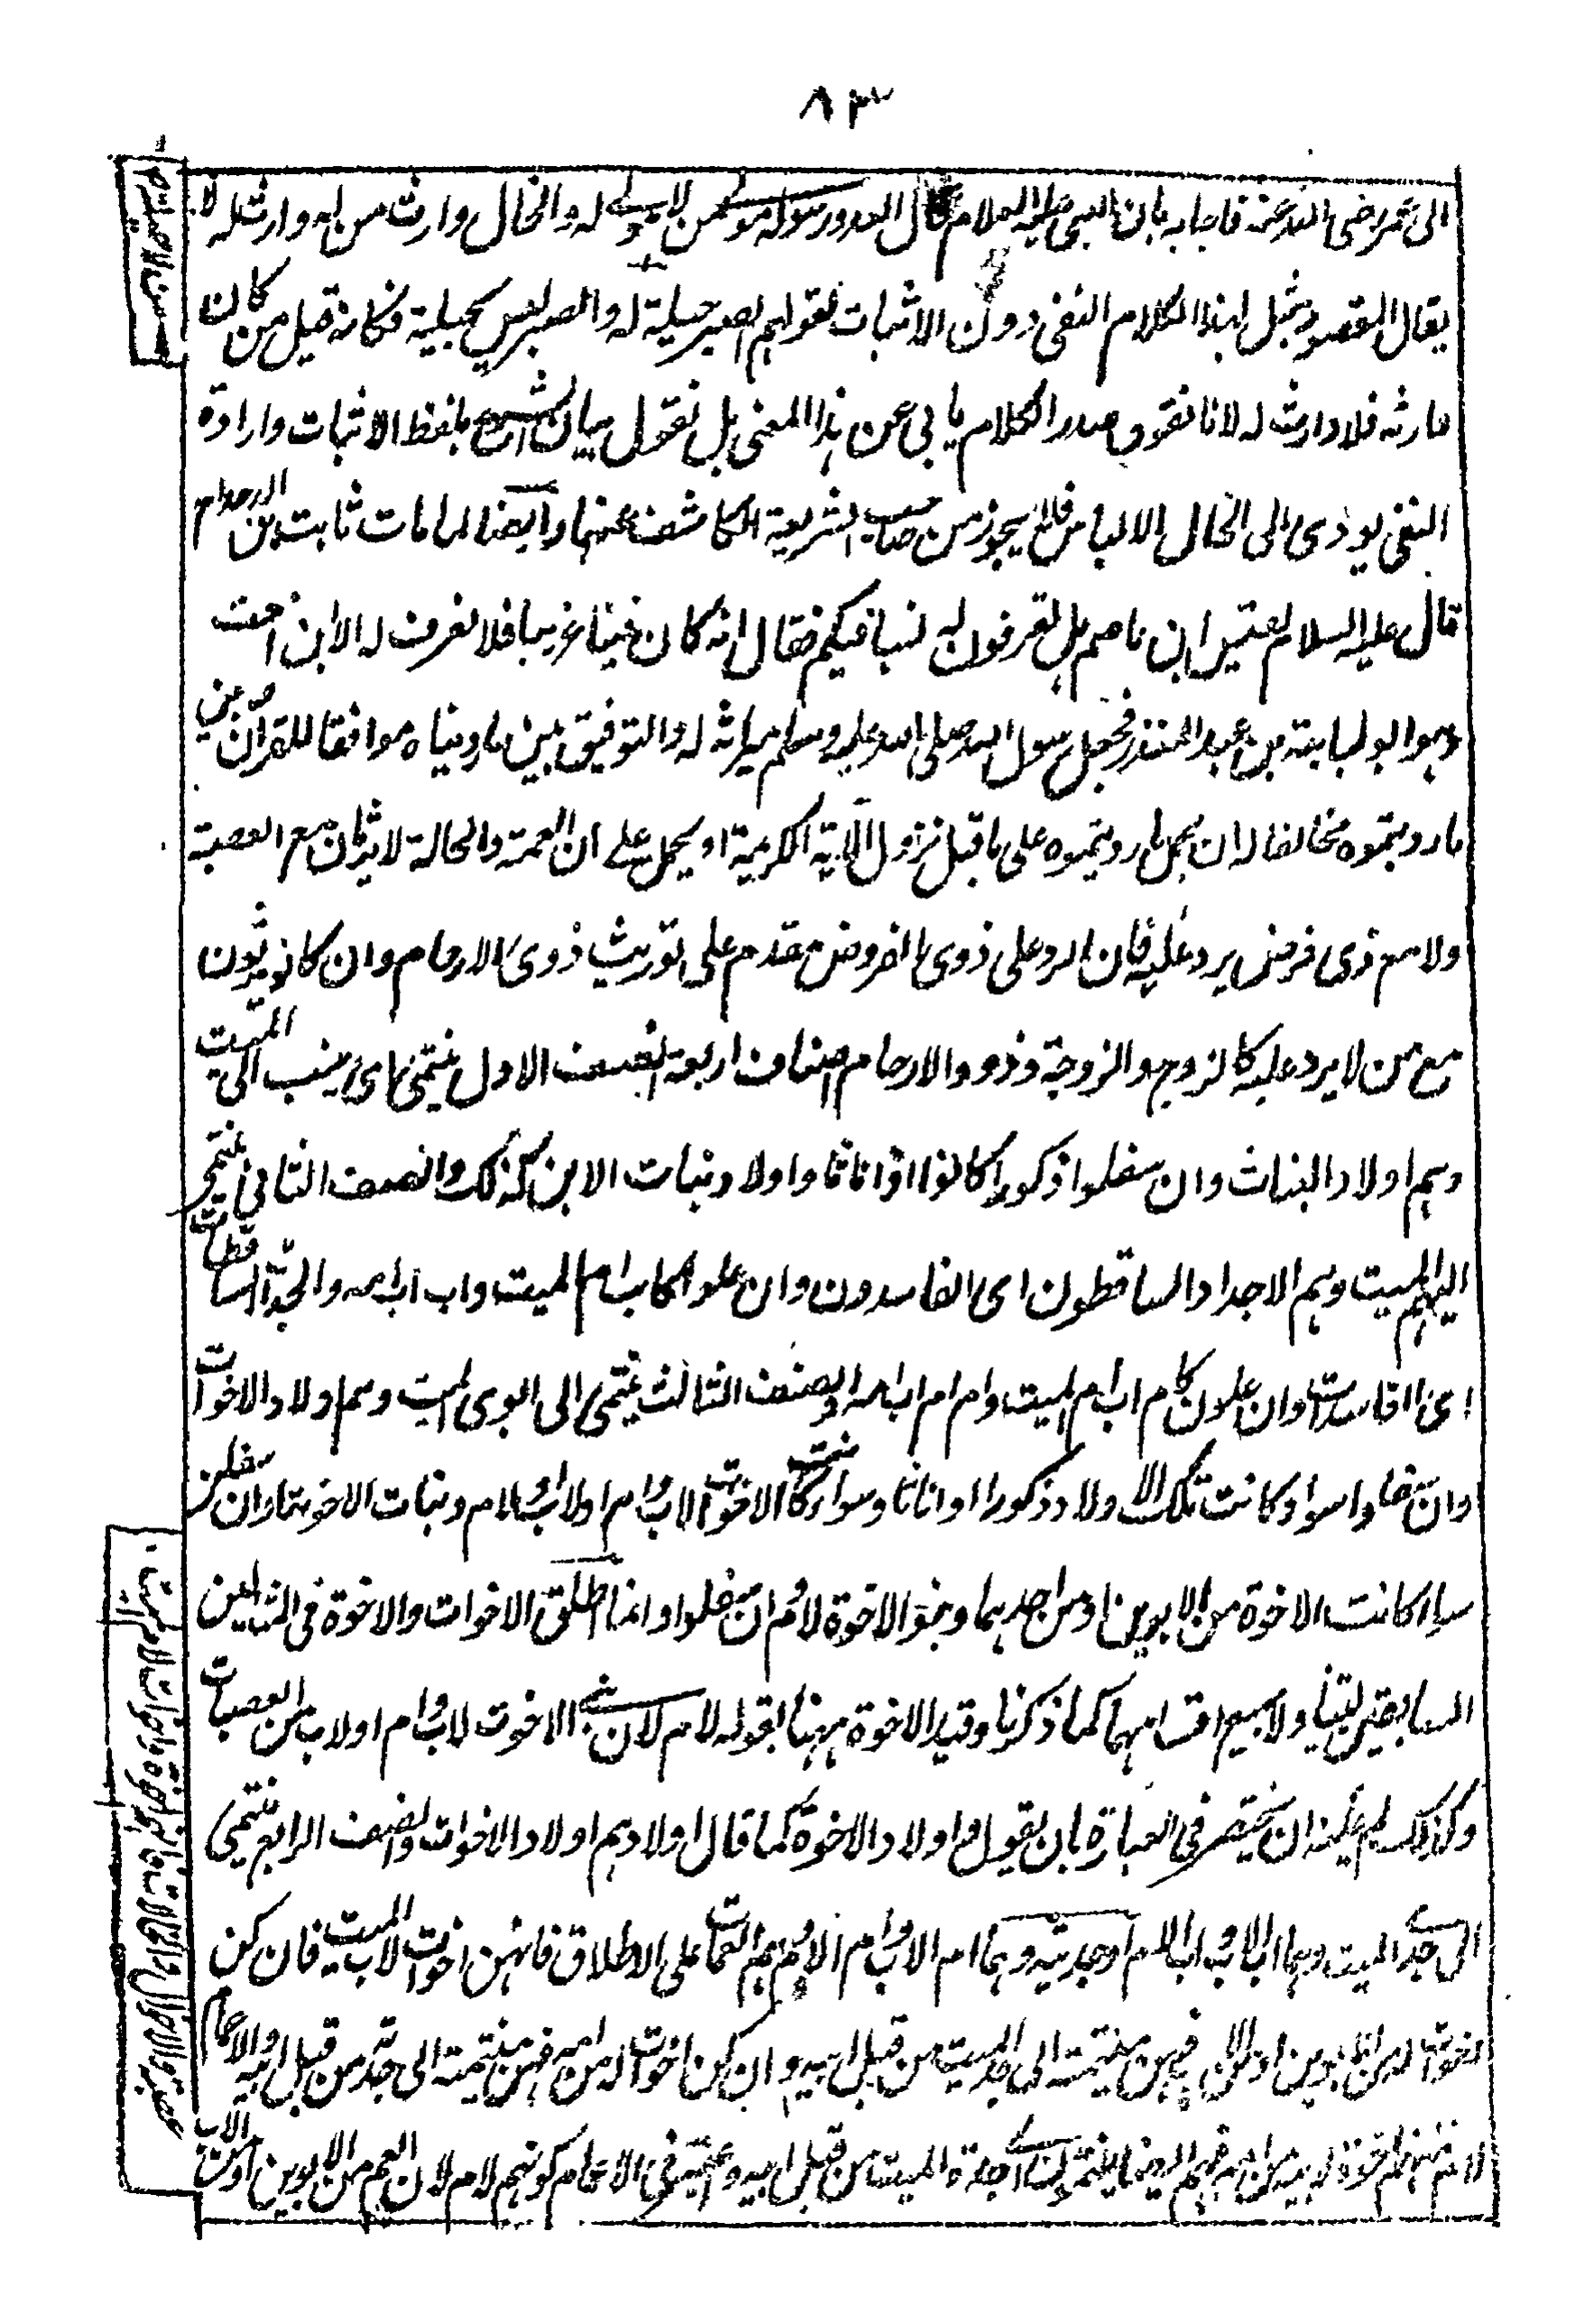 ٨٣
الى عمر رضى الله عنه فاجابه بان النبى عليه السلام قال الله ورسوله مولى من لا مولى له والخال وارث من لا وارث له لا
يقال المقصود بمثل هذا الكلام النفى دون الاثبات كقولهم الصبر حيلة من لا حيلة له والصبر ليس بحيلة فكانه قيل من كان
وارثه فلا وارث له لانا نقول صدر الكلام يابى عن هذا المعنى بل نقول بيان الشرع بلفظ الاثبات وارادة
النفى يودى الى الخال الالباس فلا يجوز من صاحب الشريعة الكاشف عنها وايضا لما مات ثابت بن الدحداح
قال عليه السلام لقيس ابن عاصم هل تعرفون له نسبا فيكم فقال انه كان فينا غريبا فلا نعرف له الا ابن اخت
وهو ابو لبابة بن عبد المنذر فجعل رسول الله صلى الله عليه وسلم ميراثه له والتوفيق بين ما رويناه موافقا للقرآن وبين
ما رويتموه مخالفا له ان يحمل ما رويتموه على ما قبل نزول الآية الكريمة او يحمل على ان العمة والخالة لا يرثان مع العصبة
ولا مع ذى فرض يرد عليه فان الرد على ذوى الفروض مقدم على توريث ذوى الارحام وان كانوا يرثون
مع من لا يرد عليه كالزوج والزوجة وذوو الارحام اصناف اربعة الصنف الاول ينتمى اى ينسب الى الميت
وهم اولاد البنات وان سفلوا ذكورا كانوا او اناثا واولاد بنات الابن كذلك والصنف الثانى ينتمى
اليهم الميت وهم الاجداد الساقطون اى الفاسدون وان علوا كاب ام الميت واب اب امه والجدات الساقطات
اى الفاسدات وان علون كام اب ام الميت وام ام اب امه والصنف الثالث ينتمى الى ابوى الميت وهم اولاد الاخوات
وان سفلوا سواء كانت تلك الاولاد ذكورا او اناثا وسواء كانت الاخوات لاب وام او لاب او لام وبنات الاخوة وان سفلن
سواء كانت الاخوة من الابوين او من احدهما وبنو الاخوة لام وان سفلوا وانما اطلق الاخوات والاخوة فى المثالين
السابقين ليتناولا جميع اقسامهما كما ذكرنا وقيد الاخوة ههنا بقوله لام لان بنى الاخوة لاب وام او لاب من العصبات
وكذلك لم يمكنه ان يختصر فى العبارة بان يقول واولاد الاخوة كما قال اولادهم اولاد الاخوات والصنف الرابع ينتمى
الى جدى الميت وهما اب الاب واب الام او جدتيه وهما ام الاب وام الام وهم العمات على الاطلاق فانهن اخوات لاب الميت فان كن
اخوات له من ابوين او لاب فهن منتمية الى جد الميت من قبل ابيه وان كن اخوات له من امه فهن منتمية الى جدته من قبل ابيه والاعمام
لام فانهم اخوة لابيه من امه فهم ايضا ينتمون الى جدة الميت من قبل ابيه وقيد فى الاعمام كونهم لام لان العم من الابوين او من الاب